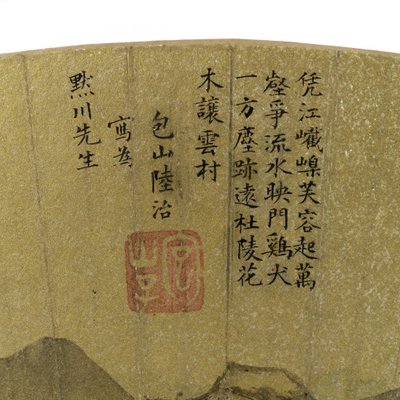 凭江嶻嵲芙容起萬
壑爭流水映門鷄犬
一方塵跡遠杜陵花
木讓雲村
包山陸治
寫為
黙川先生